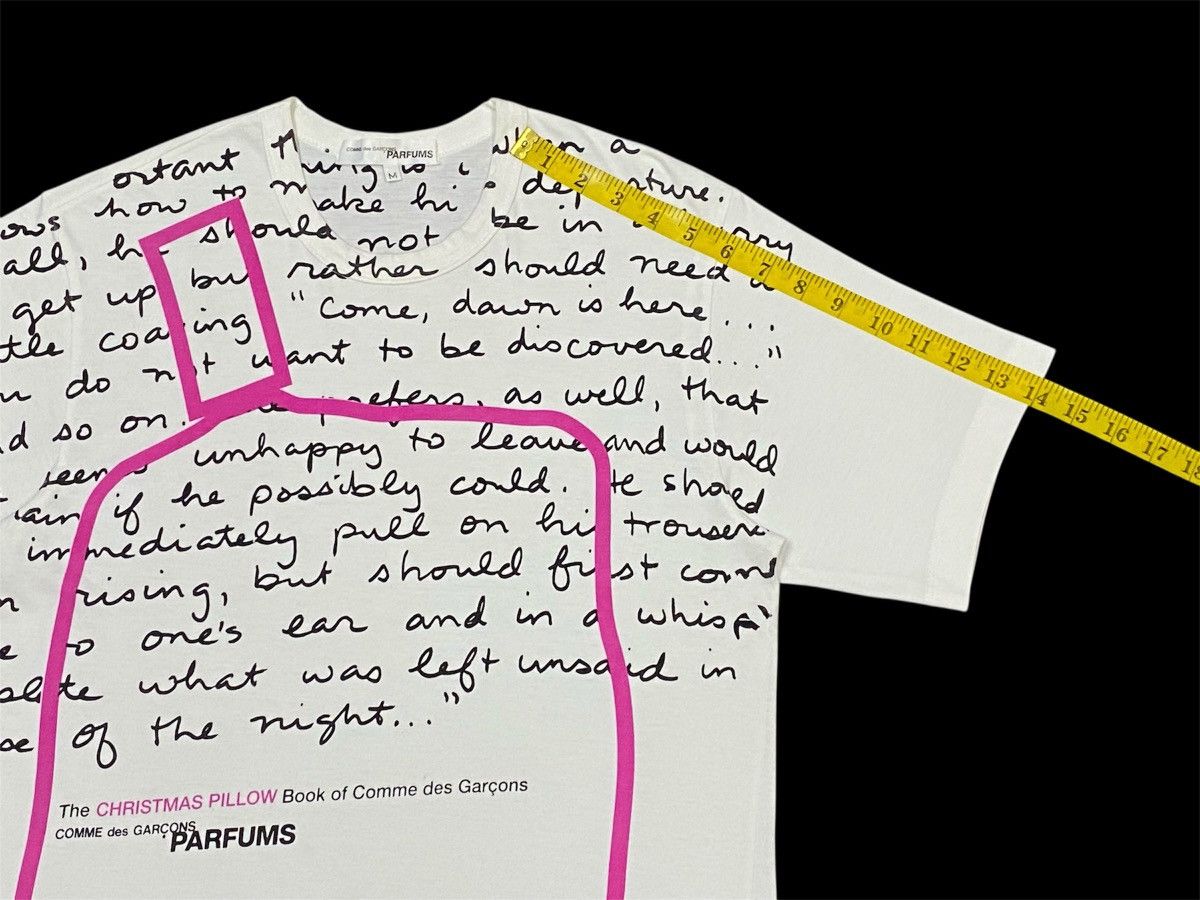 COMME des GARÇONS
PARFUMS
M
ortant thing is when a
how to make hi depature.
all, he should not be in
get up but rather should need a
coaxing "Come, dawn is here...
do not want to be discovered..."
so on. prefers, as well, that
unhappy to leave and would
if he possibly could. He should
immediately pull on hi trousers
rising, but should first com
to one's ear and in a whisp
what was left unsaid in
of the night..."
The CHRISTMAS PILLOW Book of Comme des Garçons
COMME des GARÇONS
PARFUMS
1 2 3 4 5 6 7 8 9 10 11 12 13 14 15 16 17 18